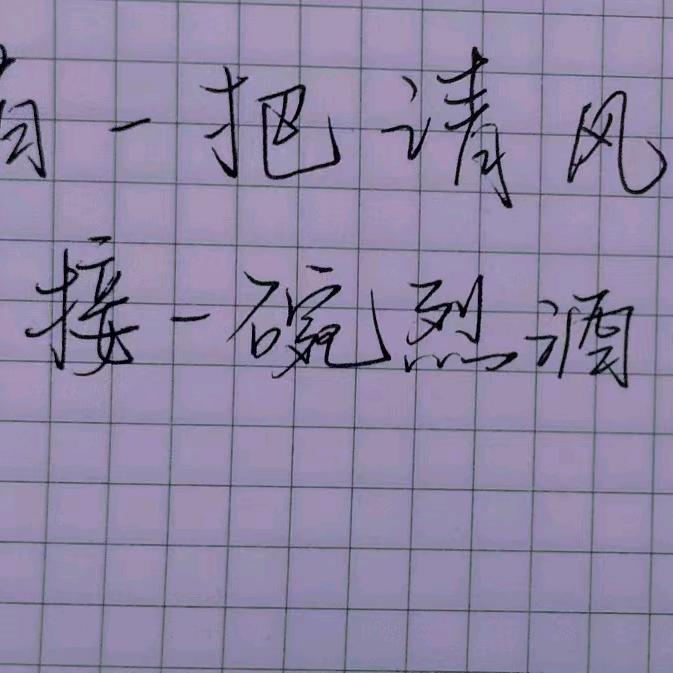 有一把请风
接一碗烈酒